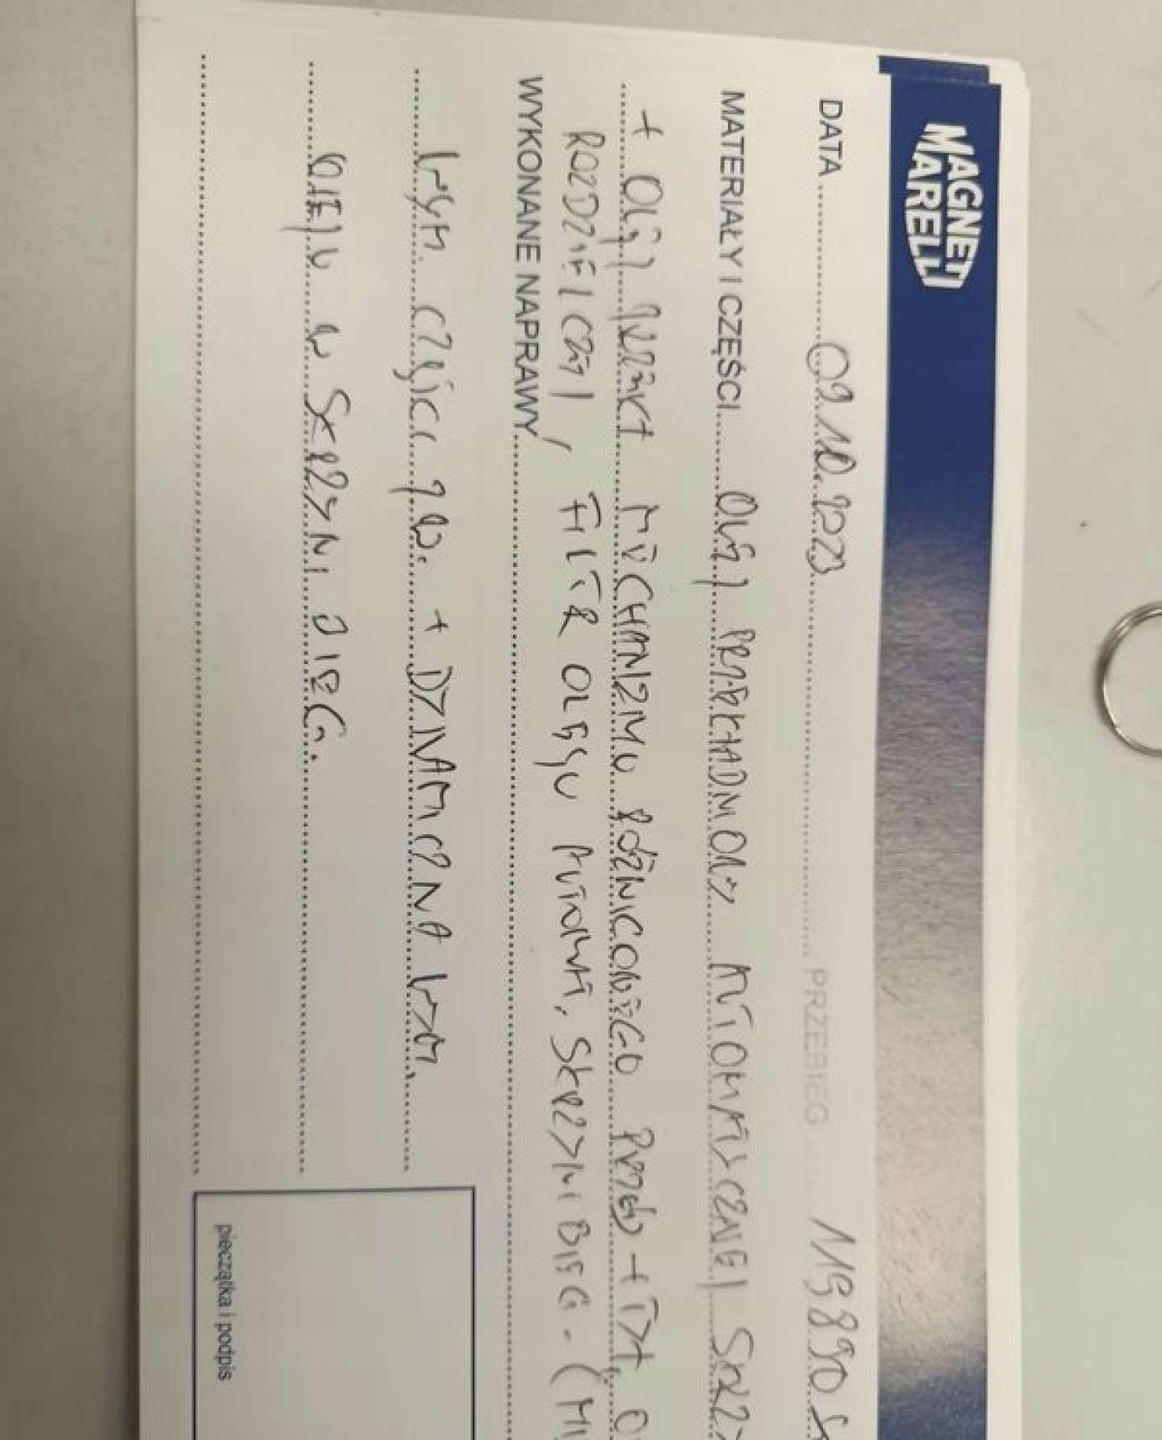 MAGNETI
MARELLI
DATA 09.10.2023 PRZEBIEG 119890
MATERIAŁY I CZĘŚCI OLEJ PRZEKŁADNIOWY AUTOMATYCZNEJ SKRZY
+ OLEJ MECHANIZMU RÓŻNICOWEGO PRZÓD + TYŁ, O
ROZDZIELCZEJ, FILTR OLEJU AUTOMAT. SKRZYNI BIEG. (MI
WYKONANE NAPRAWY
WYM. CZĘŚCI + DYNAMICZNA WYM.
OLEJU W SKRZYNI BIEG.
pieczątka i podpis